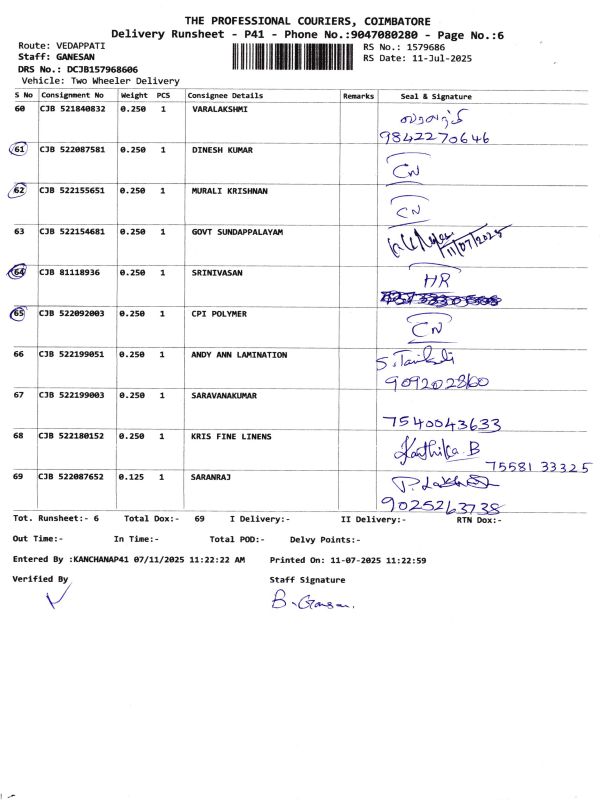 THE PROFESSIONAL COURIERS, COIMBATORE
Delivery Runsheet - P41 - Phone No.:9047080280 - Page No.:6
Route: VEDAPPATI
Staff: GANESAN
DRS No.: DCJB157968606
Vehicle: Two Wheeler Delivery
RS No.: 1579686
RS Date: 11-Jul-2025
S No Consignment No Weight PCS Consignee Details Remarks Seal & Signature
60 CJB 521840832 0.250 1 VARALAKSHMI
9842270646
61 CJB 522087581 0.250 1 DINESH KUMAR CN
62 CJB 522155651 0.250 1 MURALI KRISHNAN CN
63 CJB 522154681 0.250 1 GOVT SUNDAPPALAYAM
11/07/2025
64 CJB 81118936 0.250 1 SRINIVASAN HR
65 CJB 522092003 0.250 1 CPI POLYMER CN
66 CJB 522199051 0.250 1 ANDY ANN LAMINATION
9092028160
67 CJB 522199003 0.250 1 SARAVANAKUMAR
7540043633
68 CJB 522180152 0.250 1 KRIS FINE LINENS Karthika B
75581 33325
69 CJB 522087652 0.125 1 SARANRAJ
9025263738
Tot. Runsheet:- 6 Total Dox:- 69 I Delivery:- II Delivery:- RTN Dox:-
Out Time:- In Time:- Total POD:- Delvy Points:-
Entered By :KANCHANAP41 07/11/2025 11:22:22 AM Printed On: 11-07-2025 11:22:59
Verified By Staff Signature